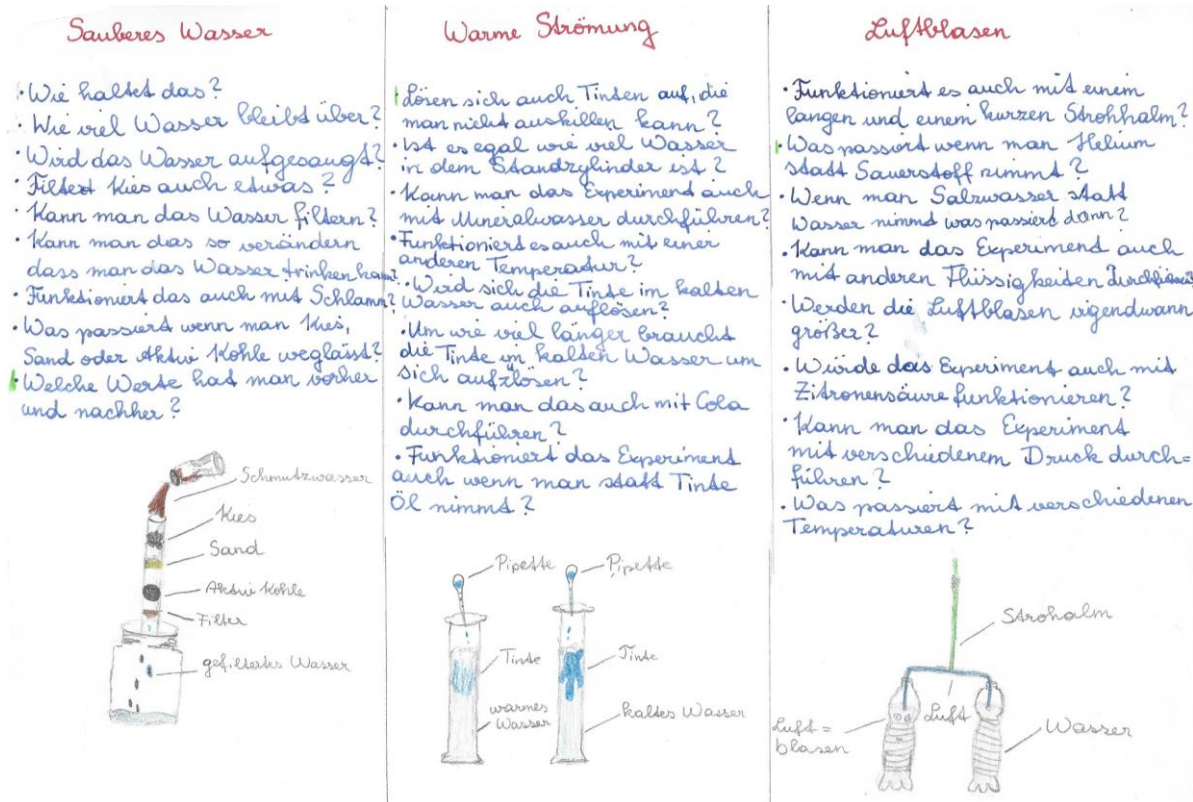 Sauberes Wasser
· Wie haltet das?
· Wie viel Wasser bleibt über?
· Wird das Wasser aufgesaugt?
· Filtert Kies auch etwas?
· Kann man das Wasser filtern?
· Kann man das so verändern
dass man das Wasser trinken kann?
· Funktioniert das auch mit Schlamm?
· Was passiert wenn man Kies,
Sand oder Aktiv Kohle weglässt?
· Welche Werte hat man vorher
und nachher?
Schmutzwasser
Kies
Sand
Aktiv Kohle
Filter
gefiltertes Wasser
Warme Strömung
Lösen sich auch Tinten auf, die
man nicht auskillen kann?
· Ist es egal wie viel Wasser
in dem Standzylinder ist?
· Kann man das Experiment auch
mit Mineralwasser durchführen?
· Funktioniert es auch mit einer
anderen Temperatur?
· Wird sich die Tinte im kalten
Wasser auch auflösen?
· Um wie viel länger braucht
die Tinte im kalten Wasser um
sich aufzlösen?
· Kann man das auch mit Cola
durchführen?
· Funktioniert das Experiment
auch wenn man statt Tinte
Öl nimmt?
Pipette
Pipette
Tinte
Tinte
warmes
Wasser
kaltes Wasser
Luftblasen
· Funktioniert es auch mit einem
langen und einem kurzen Strohhalm?
· Was passiert wenn man Helium
statt Sauerstoff nimmt?
· Wenn man Salzwasser statt
Wasser nimmt was passiert dann?
· Kann man das Experiment auch
mit anderen Flüssigkeiten
· Werden die Luftblasen irgendwann
größer?
· Würde das Experiment auch mit
Zitronensäure funktionieren?
· Kann man das Experiment
mit verschiedenem Druck durch=
führen?
· Was passiert mit verschiedenen
Temperaturen?
Strohalm
Luft
Luft=
blasen
Wasser